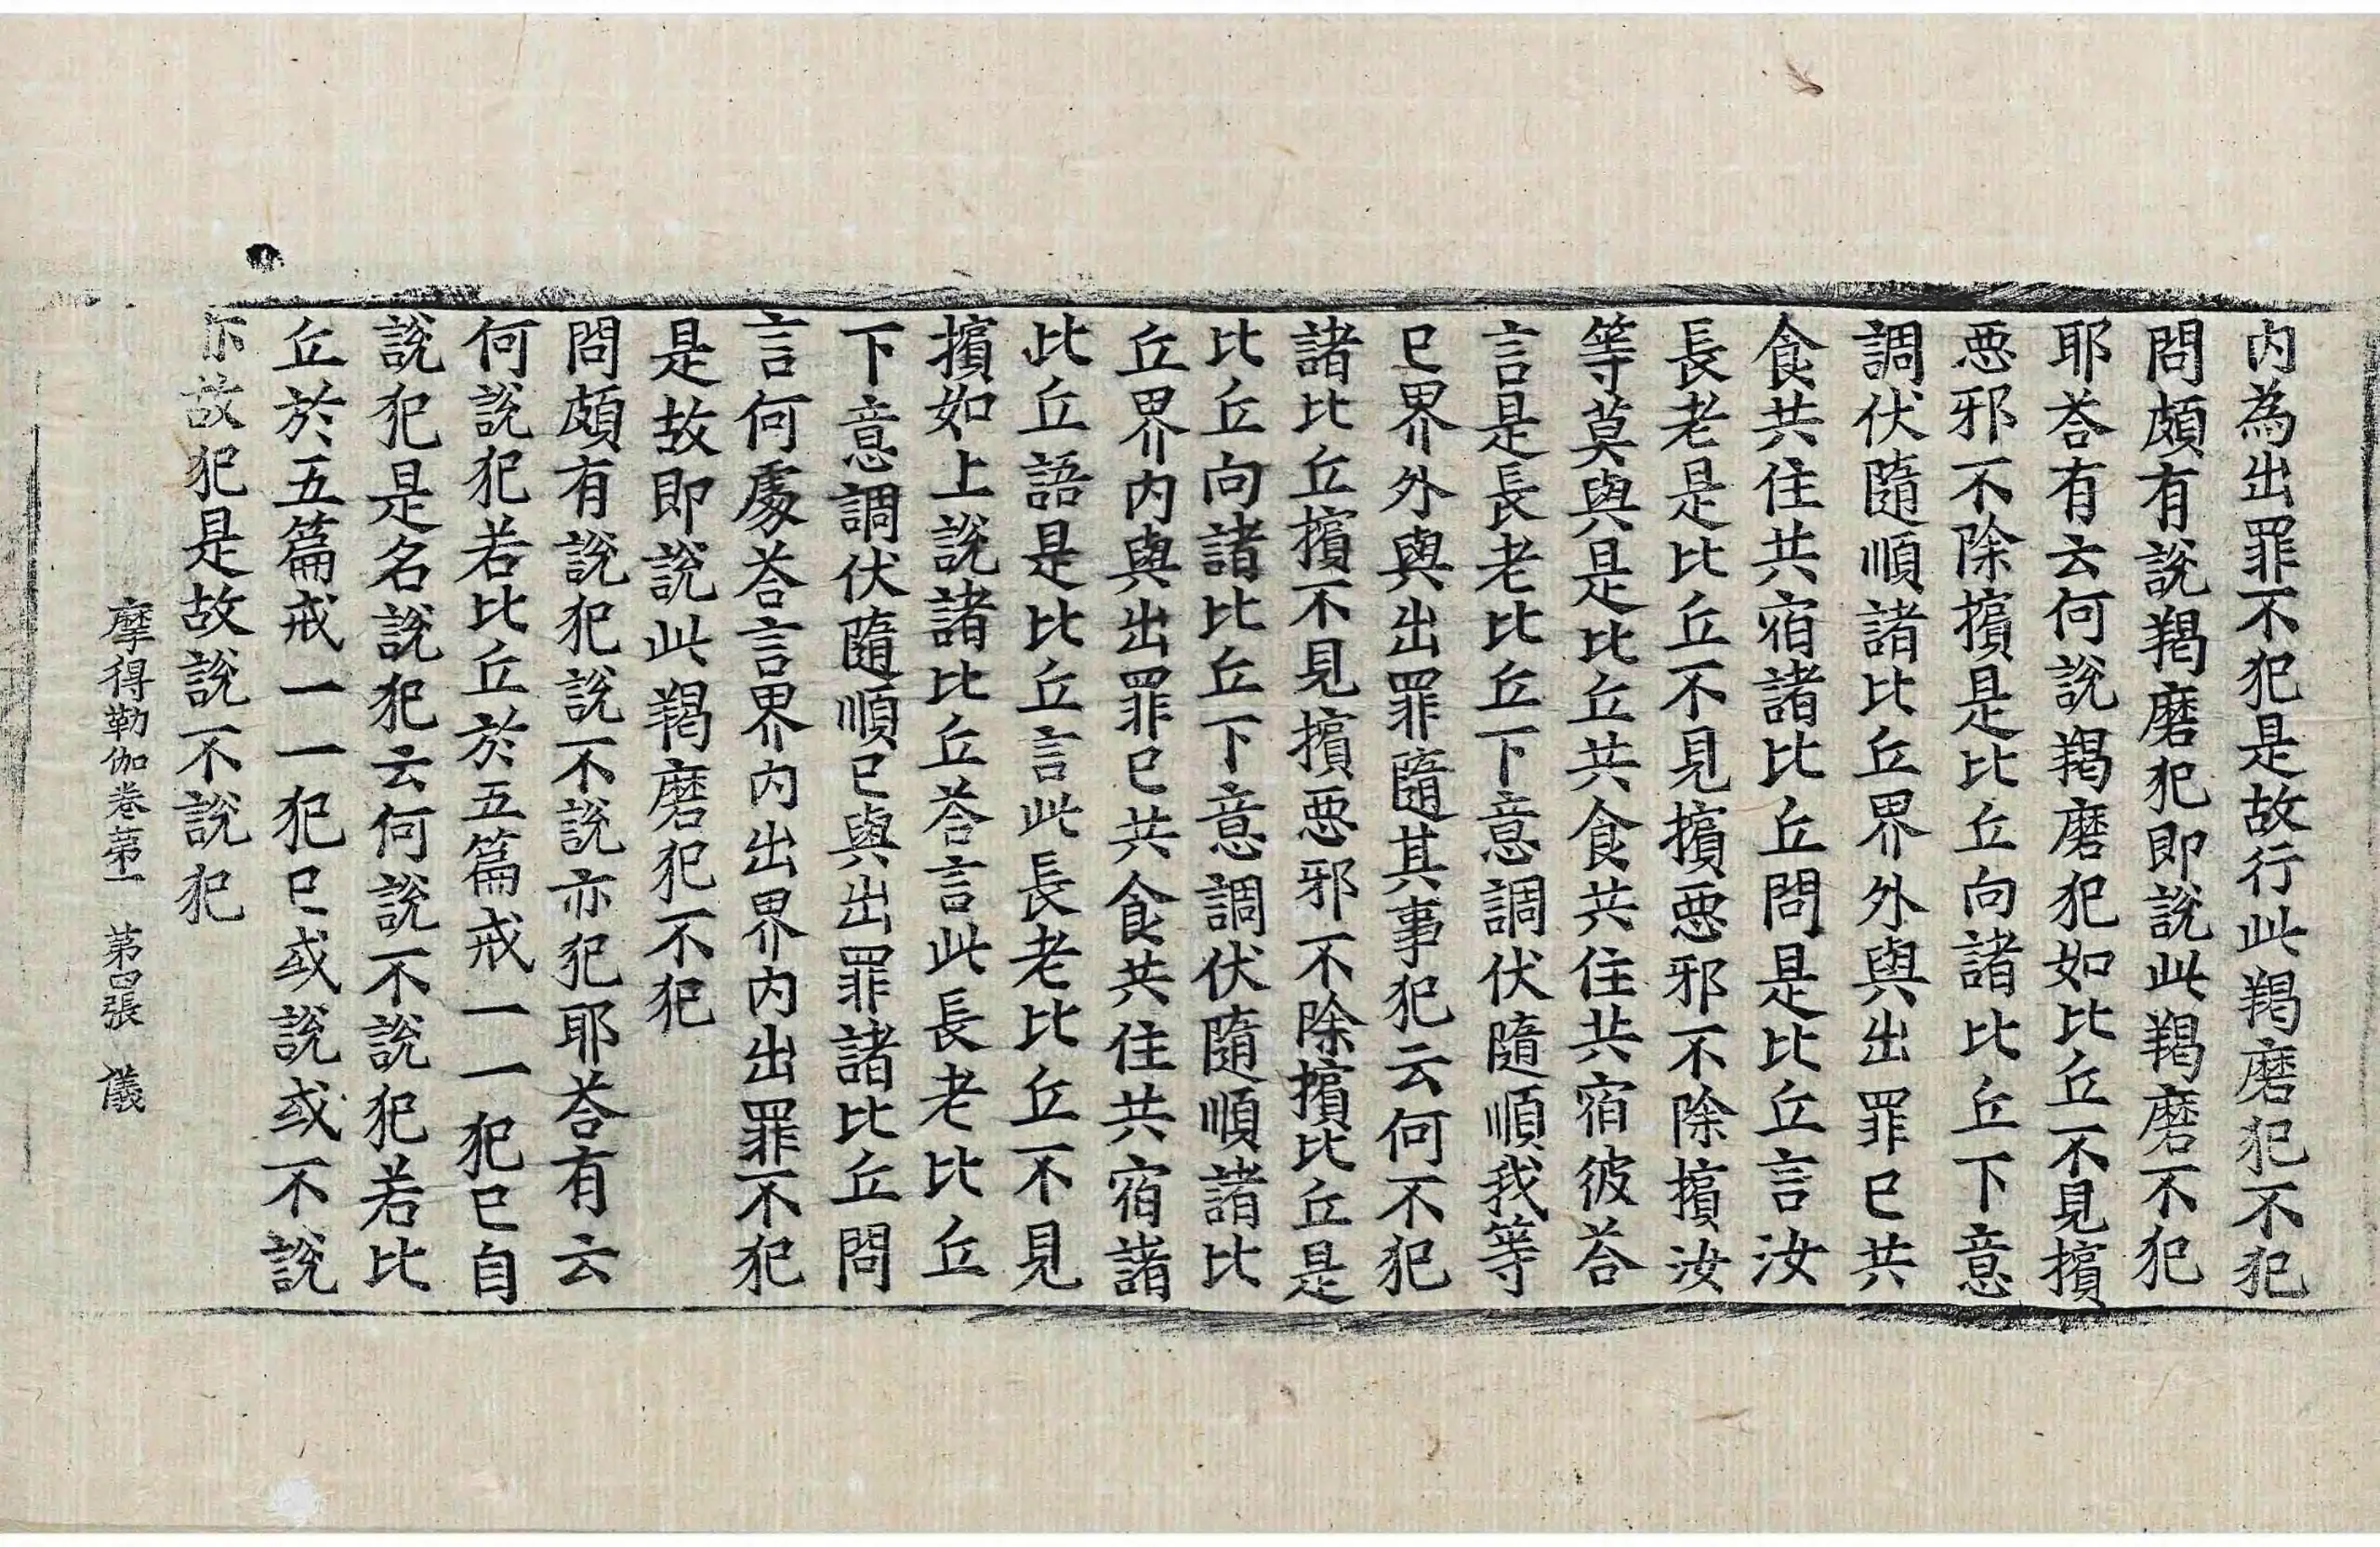 内為出罪不犯是故行此羯磨犯不犯
問頗有說羯磨犯即說此羯磨不犯
耶荅有云何說羯磨犯如比丘不見擯
惡邪不除擯是比丘向諸比丘下意
調伏隨順諸比丘界外與出罪已共
食共住共宿諸比丘問是比丘言汝
長老是比丘不見擯惡邪不除擯汝
等莫與是比丘共食共住共宿彼荅
言是長老比丘下意調伏隨順我等
已界外與出罪隨其事犯云何不犯
諸比丘擯不見擯惡邪不除擯比丘是
比丘向諸比丘下意調伏隨順諸比
丘界内與出罪已共食共住共宿諸
比丘語是比丘言此長老比丘不見
擯如上說諸比丘荅言此長老比丘
下意調伏隨順已與出罪諸比丘問
言何處荅言界内出界内出罪不犯
是故即說此羯磨犯不犯
問頗有說犯說不說亦犯耶荅有云
何說犯若比丘於五篇戒一一犯已自
說犯是名說犯云何說不說犯若比
丘於五篇戒一一犯已或說或不說
故犯是故說不說犯
摩得勒伽卷第一　第四張　儀